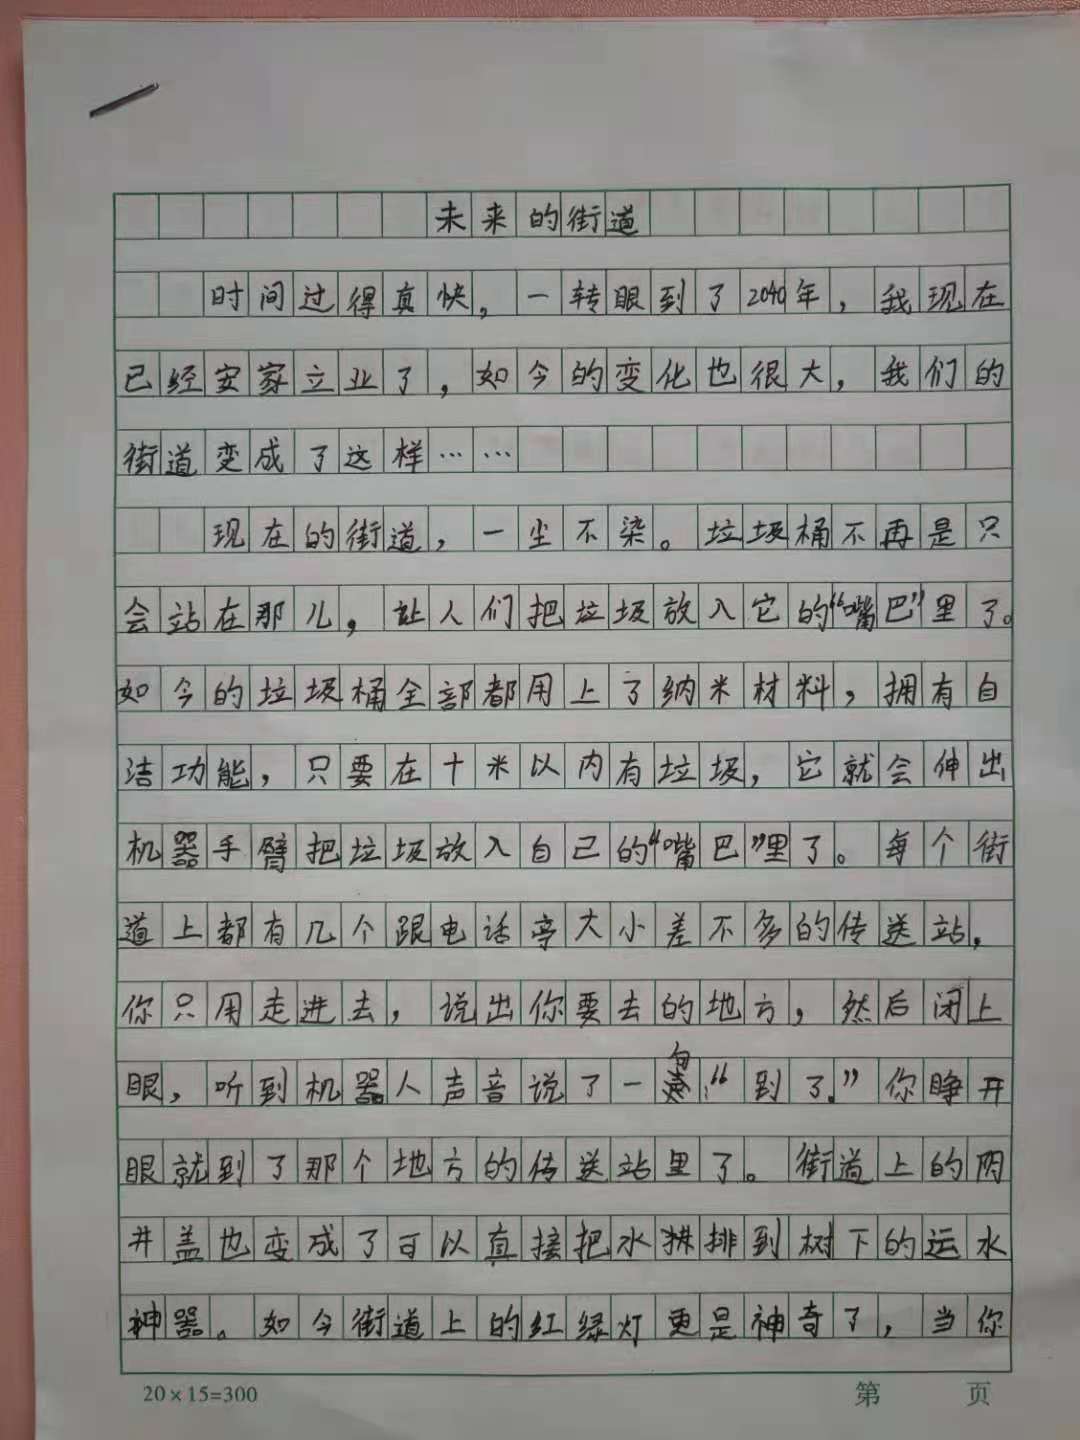 未来的街道
时间过得真快，一转眼到了2040年，我现在
已经安家立业了，如今的变化也很大，我们的
街道变成了这样……
现在的街道，一尘不染。垃圾桶不再是只
会站在那儿，让人们把垃圾放入它的“嘴巴”里了。
如今的垃圾桶全部都用上了纳米材料，拥有自
洁功能，只要在十米以内有垃圾，它就会伸出
机器手臂把垃圾放入自己的“嘴巴”里了。每个街
道上都有几个跟电话亭大小差不多的传送站，
你只用走进去，说出你要去的地方，然后闭上
眼，听到机器人声音说了一句：“到了。”你睁开
眼就到了那个地方的传送站里了。街道上的阴
井盖也变成了可以直接把水排到树下的运水
神器。如今街道上的红绿灯更是神奇了，当你
20×15=300
第 页